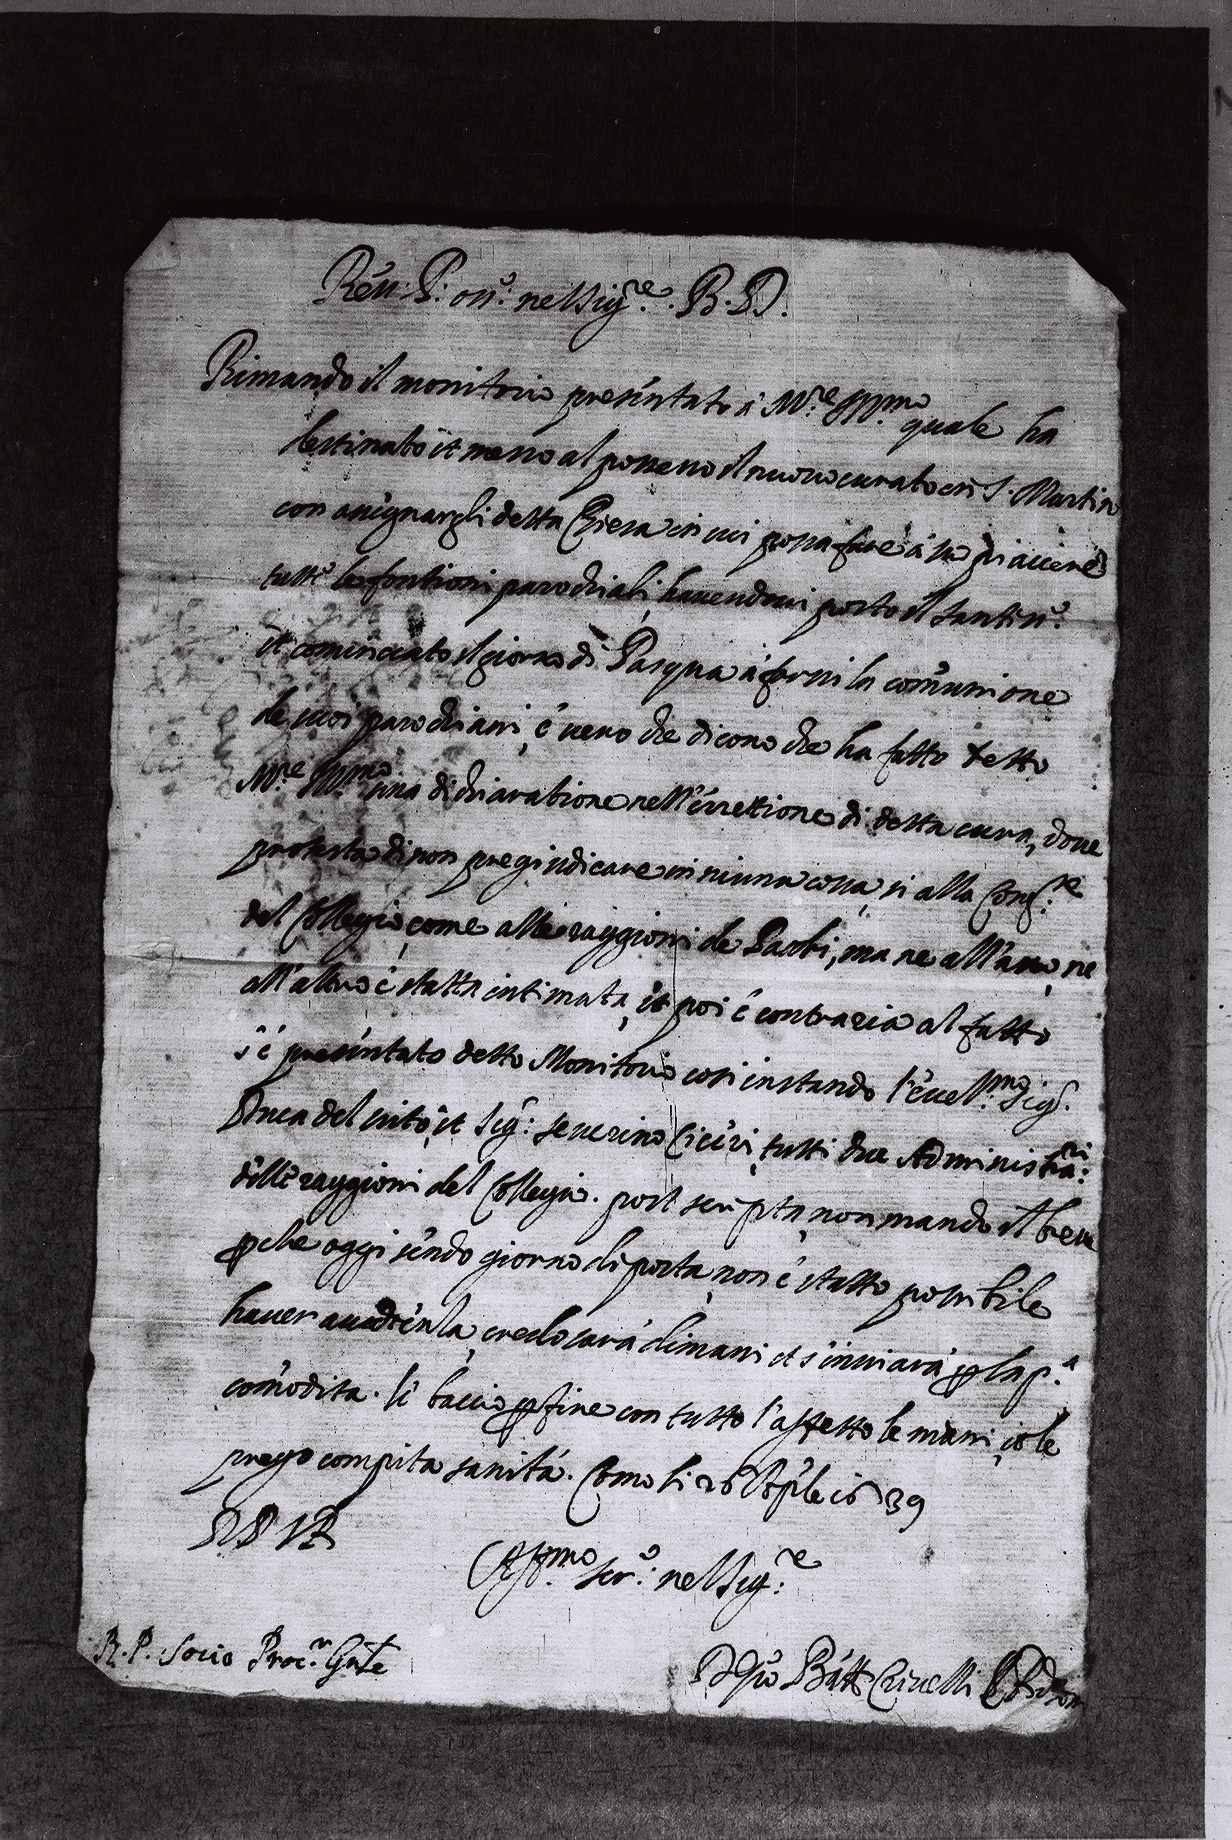 Reu: P. oss.o nel Sig.re B. D.
Rimando il monitorio presentato à M.re Ill.mo quale ha
destinato et messo al possesso il nuovo curato in S. Martin
con assignargli detta Chiesa in cui possa fare à suo piacere
tutte le fontioni parochiali, havendovi posto il Santiss.o
et cominciato il giorno di Pasqua à farvi la comunione
de suoi parochiani, è vero che dicono che ha fatto detto
M.re Ill.mo una dichiaratione nell'errettione di detta cura, dove
protesta di non pregiudicare in niuna cossa, si alla Cong.ne
del Collegio, come alle raggioni de Parti, ma ne all'uno, ne
all'altro è statta intimata, et poi è contraria al fatto
s'è presentato detto Monitorio cosi instando l'ecell.mo Sig.
Luca del et Sig: Severino Ciceri, tutti due Administra.ri
delle raggioni del Collegio. post scripta, non mando il breve
perche oggi sendo giorno di posta, non è statto possibile
haver audienza, credo sarà dimani et s'inviarà per la p.a
comodita. li baccio per fine con tutto l'affetto le mani, et le
prego compita sanità. Como li 26 Aprile 1639
D V P R
Aff.mo ser.o nel Sig.re
R. P. Socio Proc.r Gnle
D Gio Batt Crivelli